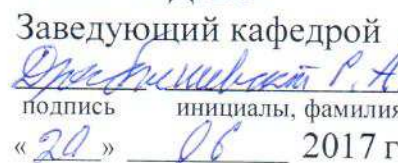 Заведующий кафедрой
Р. А
подпись инициалы, фамилия
« 20 » 06 2017 г